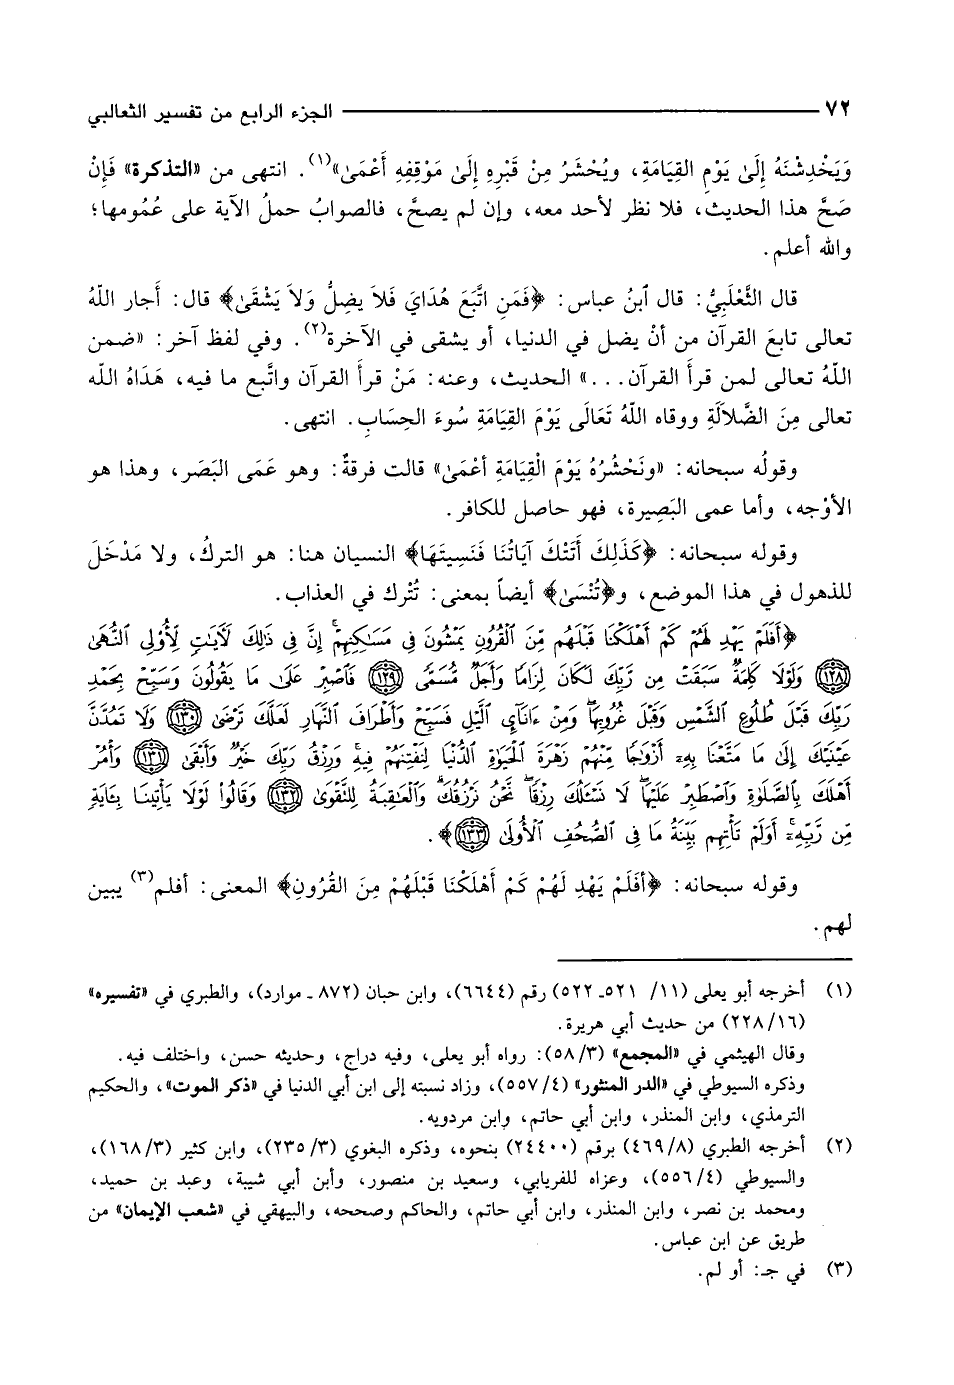 ٧٢ الجزء الرابع من تفسير الثعالبي
وَيَخْدِشْنَهُ إِلَىٰ يَوْمِ القِيَامَةِ، ويُحْشَرُ مِنْ قَبْرِهِ إِلَىٰ مَوْقِفِهِ أَعْمَىٰ»(١). انتهى من «التذكرة» فَإِنْ
صَحَّ هذا الحديث، فلا نظر لأحد معه، وإن لم يصحَّ، فالصوابُ حملُ الآية على عُمُومها؛
والله أعلم.
قال الثَّعْلَبِيُّ: قال ٱبنُ عباس: ﴿فَمَنِ اتَّبَعَ هُدَايَ فَلاَ يَضِلُّ وَلاَ يَشْقَىٰ﴾ قال: أَجار اللّهُ
تعالى تابعَ القرآن من أنْ يضل في الدنيا، أو يشقى في الآخرة(٢). وفي لفظ آخر: «ضمن
اللّهُ تعالى لمن قرأَ القرآن...» الحديث، وعنه: مَنْ قرأَ القرآن واتَّبع ما فيه، هَدَاهُ الله
تعالى مِنَ الضَّلاَلَةِ ووقاه اللّهُ تَعَالَى يَوْمَ القِيَامَةِ سُوءَ الحِسَابِ. انتهى.
وقولُه سبحانه: «ونَحْشُرُهُ يَوْمَ الْقِيَامَةِ أعْمَىٰ» قالت فرقةٌ: وهو عَمَى البَصَر، وهذا هو
الأوْجه، وأما عمى البَصِيرة، فهو حاصل للكافر.
وقوله سبحانه: ﴿كَذَلِكَ أَتَتْكَ آيَاتُنَا فَنَسِيتَهَا﴾ النسيان هنا: هو التركُ، ولا مَدْخَلَ
للذهول في هذا الموضع، و﴿تُنْسَىٰ﴾ أيضاً بمعنى: تُتْرك في العذاب.
﴿أَفَلَمْ يَهْدِ لَهُمْ كَمْ أَهْلَكْنَا قَبْلَهُم مِّنَ ٱلْقُرُونِ يَمْشُونَ فِي مَسَٰكِنِهِمْ إِنَّ فِي ذَٰلِكَ لَأَيَٰتٍ لِّأُولِي ٱلنُّهَىٰ
(١٢٨) وَلَوْلَا كَلِمَةٌ سَبَقَتْ مِن رَّبِّكَ لَكَانَ لِزَامًا وَأَجَلٌ مُّسَمًّى (١٢٩) فَٱصْبِرْ عَلَىٰ مَا يَقُولُونَ وَسَبِّحْ بِحَمْدِ
رَبِّكَ قَبْلَ طُلُوعِ ٱلشَّمْسِ وَقَبْلَ غُرُوبِهَا وَمِنْ ءَانَآيِٕ ٱلَّيْلِ فَسَبِّحْ وَأَطْرَافَ ٱلنَّهَارِ لَعَلَّكَ تَرْضَىٰ (١٣٠) وَلَا تَمُدَّنَّ
عَيْنَيْكَ إِلَىٰ مَا مَتَّعْنَا بِهِۦٓ أَزْوَٰجًا مِّنْهُمْ زَهْرَةَ ٱلْحَيَوٰةِ ٱلدُّنْيَا لِنَفْتِنَهُمْ فِيهِ وَرِزْقُ رَبِّكَ خَيْرٌ وَأَبْقَىٰ (١٣١) وَأْمُرْ
أَهْلَكَ بِٱلصَّلَوٰةِ وَٱصْطَبِرْ عَلَيْهَا لَا نَسْـَٔلُكَ رِزْقًا نَّحْنُ نَرْزُقُكَ وَٱلْعَٰقِبَةُ لِلتَّقْوَىٰ (١٣٢) وَقَالُوا لَوْلَا يَأْتِينَا بِـَٔايَةٍ
مِّن رَّبِّهِۦٓ أَوَلَمْ تَأْتِهِم بَيِّنَةُ مَا فِي ٱلصُّحُفِ ٱلْأُولَىٰ (١٣٣)﴾.
وقوله سبحانه: ﴿أَفَلَمْ يَهْدِ لَهُمْ كَمْ أَهْلَكْنَا قَبْلَهُمْ مِنَ القُرُونِ﴾ المعنى: أفلم(٣) يبين
لهم.
(١) أخرجه أبو يعلى (١١/ ٥٢١ـ ٥٢٢) رقم (٦٦٤٤)، وابن حبان (٨٧٢ ـ موارد)، والطبري في «تفسيره»
(٢٢٨/١٦) من حديث أبي هريرة.
وقال الهيثمي في «المجمع» (٥٨/٣): رواه أبو يعلى، وفيه دراج، وحديثه حسن، واختلف فيه.
وذكره السيوطي في «الدر المنثور» (٥٥٧/٤)، وزاد نسبته إلى ابن أبي الدنيا في «ذكر الموت»، والحكيم
الترمذي، وابن المنذر، وابن أبي حاتم، وابن مردويه.
(٢) أخرجه الطبري (٤٦٩/٨) برقم (٢٤٤٠٠) بنحوه، وذكره البغوي (٢٣٥/٣)، وابن كثير (١٦٨/٣)،
والسيوطي (٥٥٦/٤)، وعزاه للفريابي، وسعيد بن منصور، وأبن أبي شيبة، وعبد بن حميد،
ومحمد بن نصر، وابن المنذر، وابن أبي حاتم، والحاكم وصححه، والبيهقي في «شعب الإيمان» من
طريق عن ابن عباس.
(٣) في جـ: أو لم.